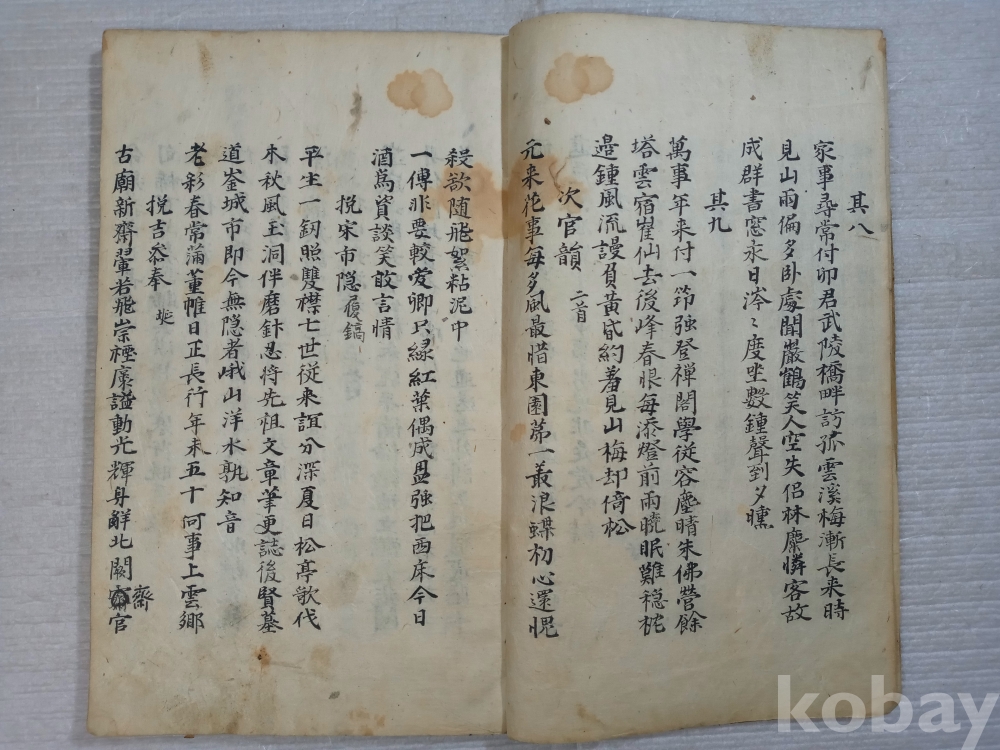 其八
家事尋常付卯君武陵橋畔訪孤雲溪梅漸長来時
見山雨偏多卧處聞嚴鶴笑人空失侶林麋憐客故
成群書窓永日涔〻度坐數鍾聲到夕曛
其九
萬事年来付一笻强登禅閣學從容塵晴朱佛營餘
塔雲宿寉仙去後峰春恨每添燈前雨曉眠難稳枕
邉鍾風流謾負黄昏約羞見山梅却倚松
次官韻 二首
元来花事每多風最惜東園第一叢浪蝶初心還愧
殺欲随飛絮粘泥中
一傳非要較愛卿只緑紅葉偶成盟强把西床今日
酒為資談笑敢言情
挽宋市隐履鎬
平生一釰照雙襟七世従来誼分深夏日松亭歌伐
木秋風玉洞伴磨針忍將先祖文章筆更誌後賢墓
道崟城市即今無隐者峨山洋水孰知音
老彩春常蒲董帷日正長行年未五十何事上雲鄉
挽吉叅奉
古廟新齋翬若飛崇禋廪謐動光輝身鲜北闕齋官
kobay